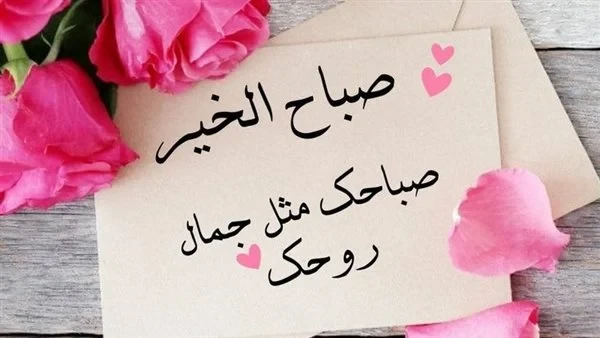 صباح الخير
صباحك مثل جمال
روحك